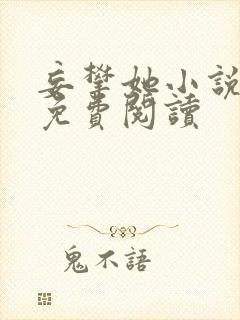 妄攀她小說
免費閱讀
鬼不語